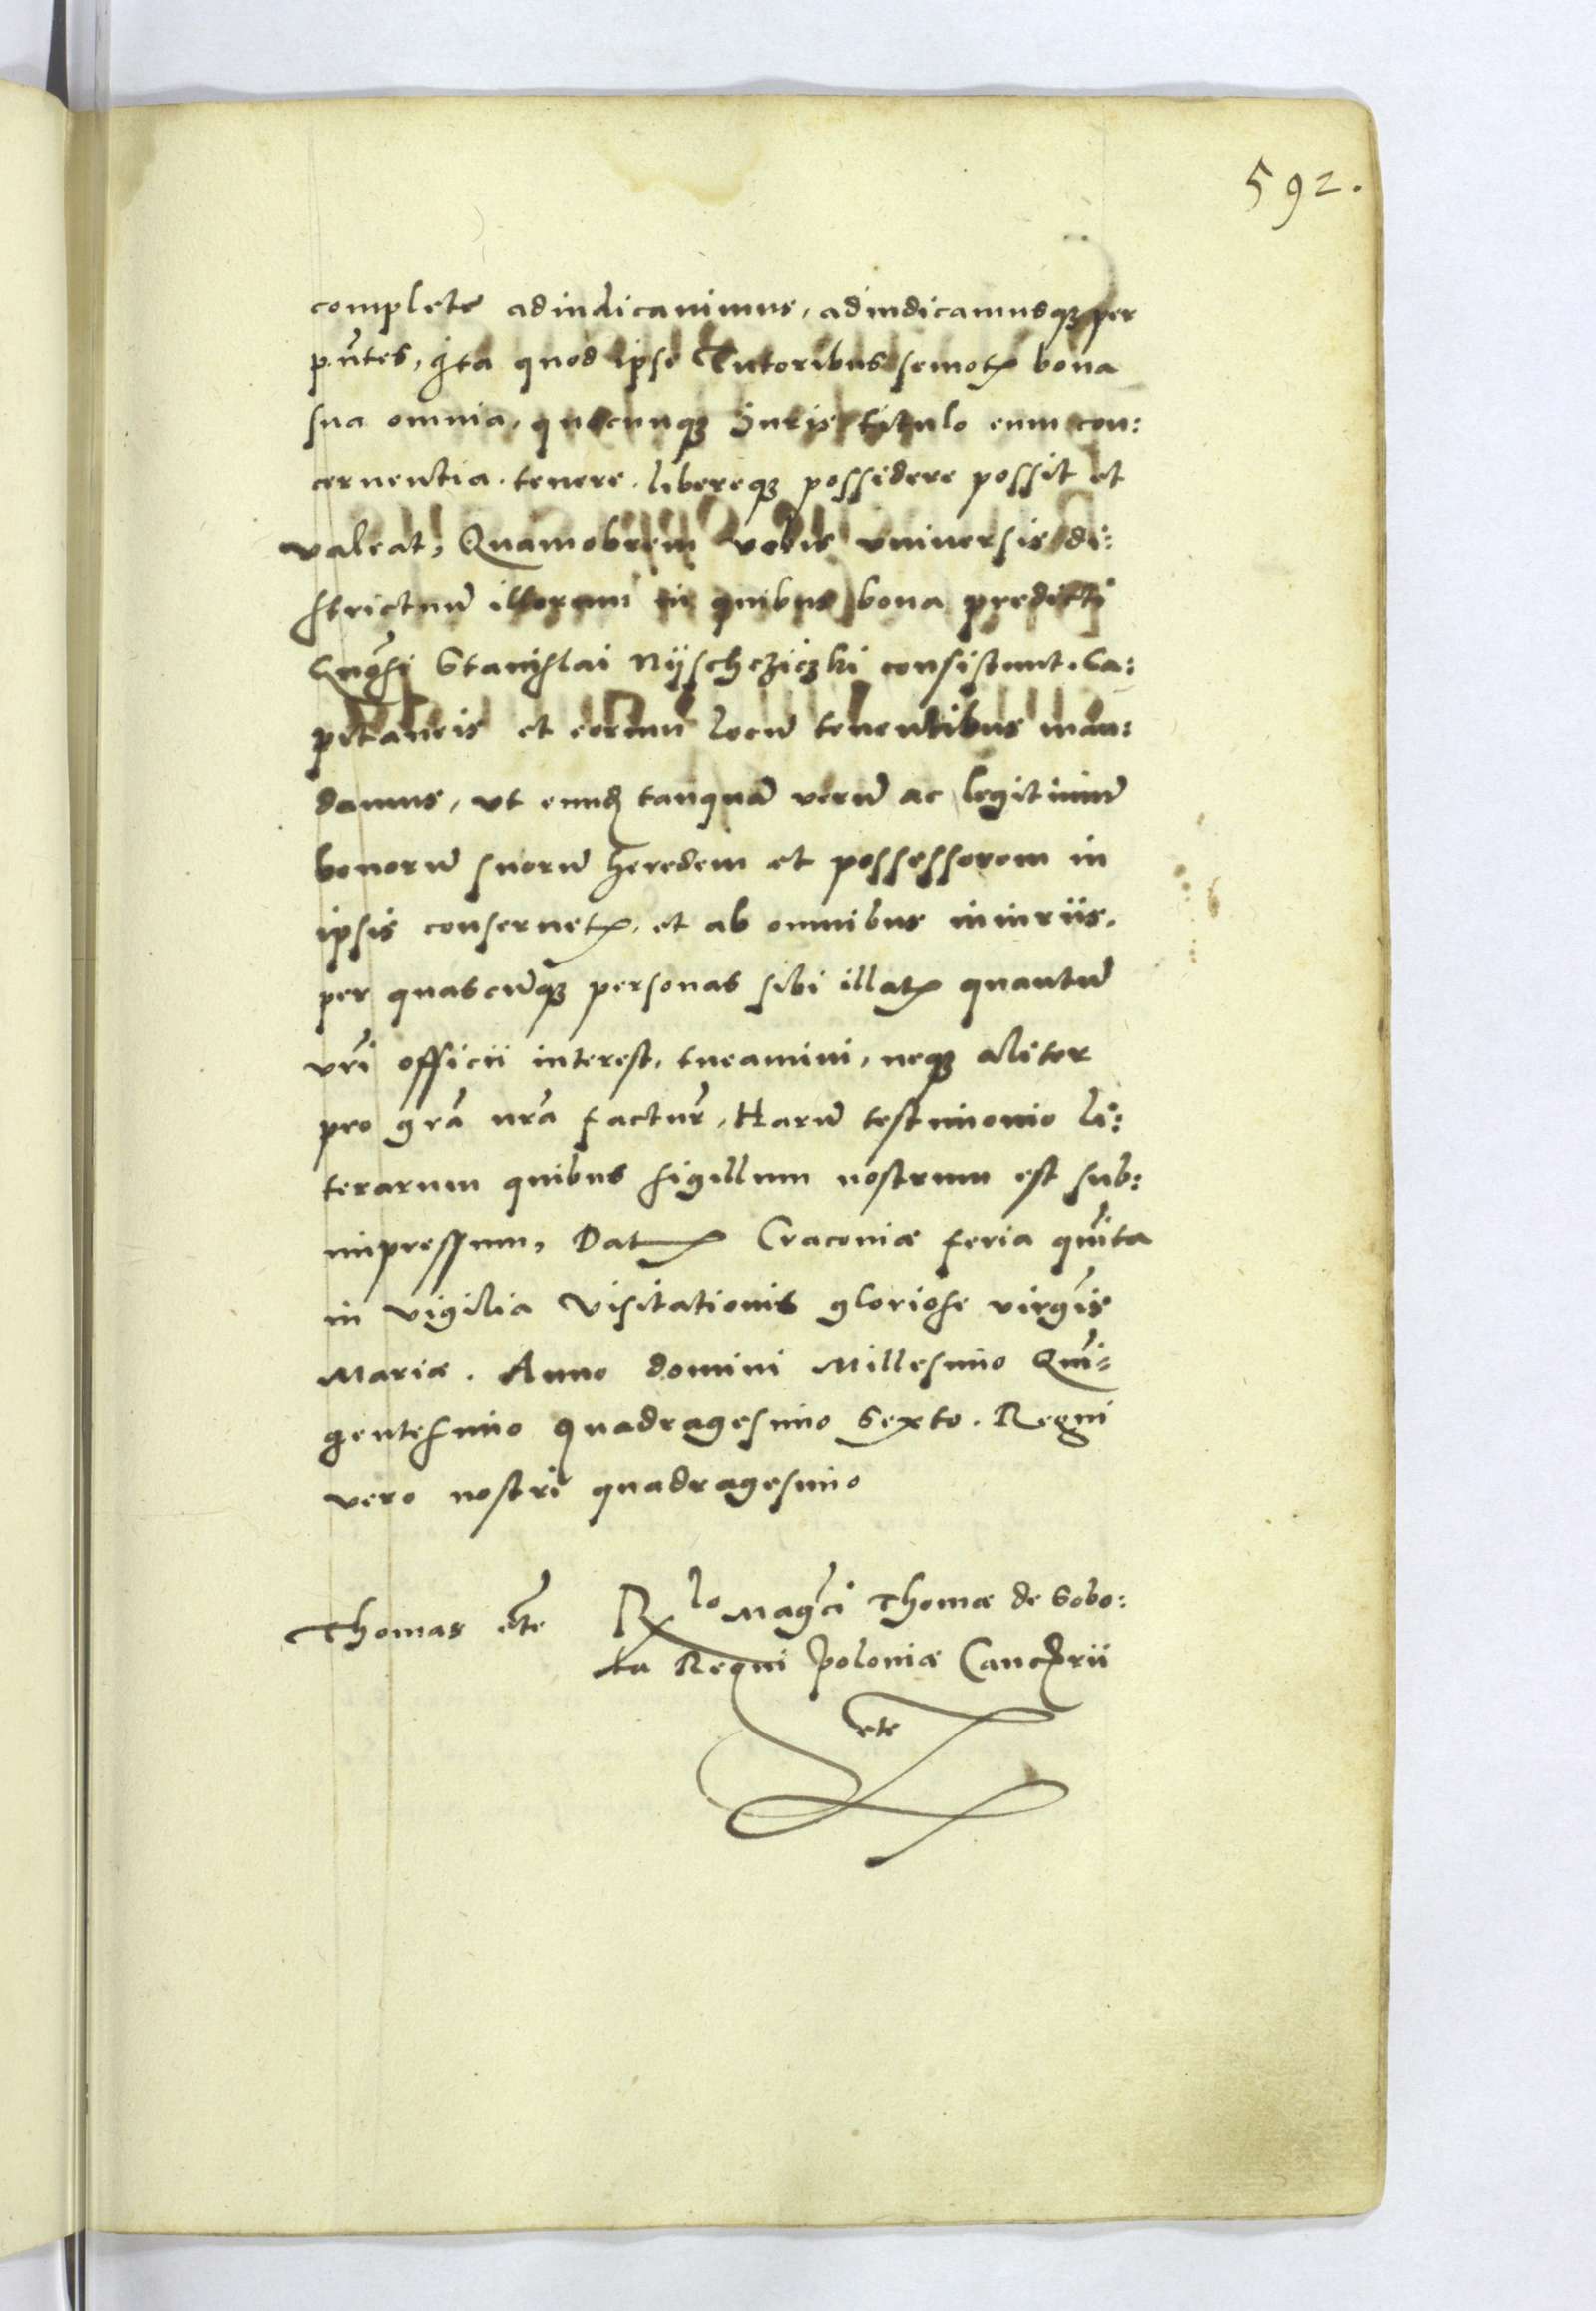 592.
complete adiudicavimus, adiudicamusq3 per
pn̄tes, ita quod ipse Tutoribus semotis bona
sua omnia, quocunq3 Juris titulo eum con:
cernentia. tenere. libereq3 possidere possit et
valeat, Quamobrem vobis vniversis di:
strictuū illorum in quibus bona predicti
Gnōsi Stanislai Nÿschcziczki consistunt. Ca:
pitaneis et eorum locū tenentibus man:
damus, vt eund tanquā verū ac legitimū
bonorū suorū heredem et possessorem in
ipsis conservetis, et ab omnibus iniuriis.
per quascūq3 personas sibi illatis quantū
vr̄i officii interest, tueamini, neq3 aliter
pro gr̄a nr̄a factur̄, Harū testimonio li:
terarum quibus sigillum nostrum est sub:
impressum, Dat Cracoviæ feria quīta
in vigilia Visitationis gloriose virgīs
Mariæ. Anno domini Millesimo Quī:
gentesimo quadragesimo Sexto. Regni
vero nostri quadragesimo
Thomas etc̄ R lo Magc̄i Thomæ de Sobo:
ta Regni Poloniæ Canclrii
etc